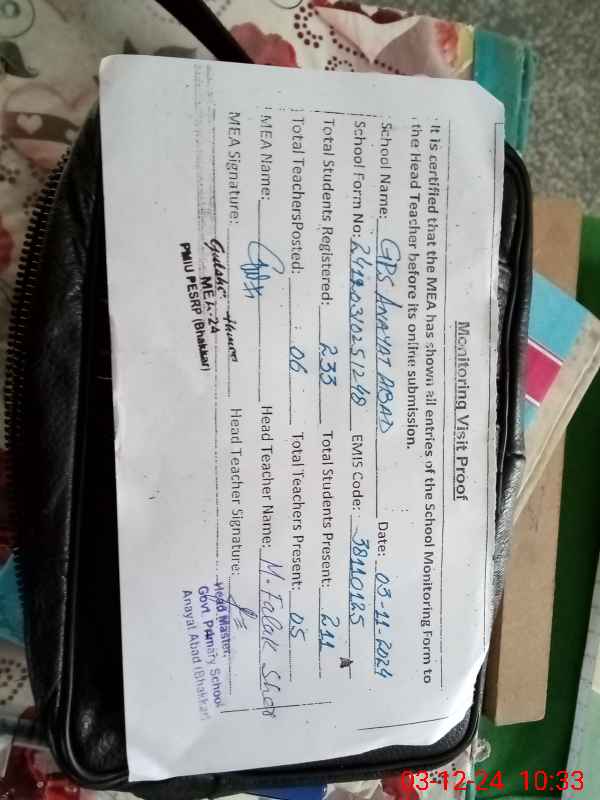 Monitoring Visit Proof
It is certified that the MEA has shown all entries of the School Monitoring Form to
the Head Teacher before its online submission.
School Name: GPS ANAYAT ABAD Date: 03-11-2024
School Form No: EMIS Code: 38110125
Total Students Registered: 233 Total Students Present: 211
Total TeachersPosted: 06 Total Teachers Present: 05
MEA Name: Head Teacher Name: M. Falak Sher
MEA Signature: Head Teacher Signature:
MEA-24
PMIU PESRP (Bhakkar)
Head Master,
Govt. Primary School
Anayat Abad (Bhakkar)
03-12-24 10:33